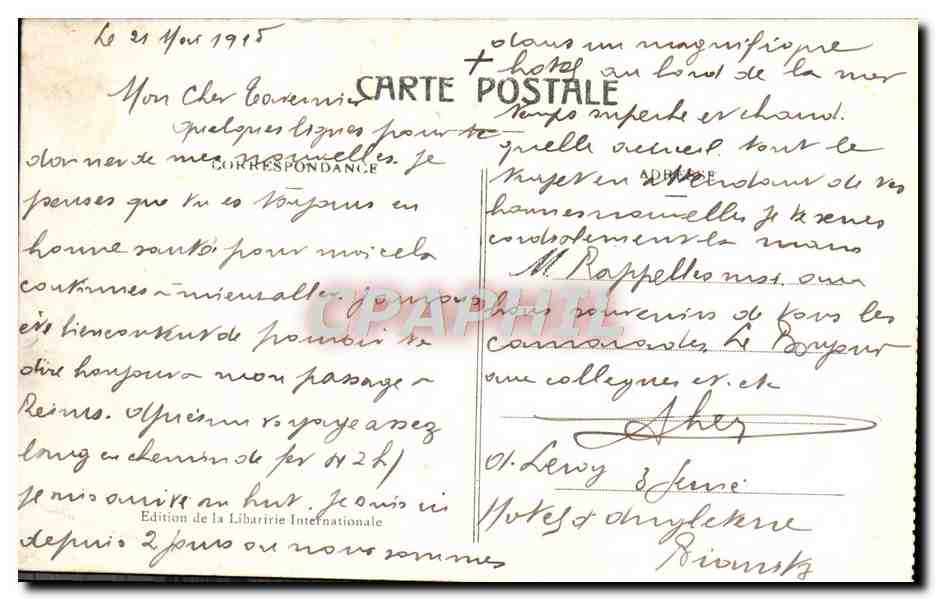 Le 21 Mai 1915
CARTE POSTALE
CORRESPONDANCE
Mon Cher Tavernier
quelques lignes pour te
donner de mes nouvelles. Je
penses que tu es toujours en
bonne santé pour moi cela
continues à mieux aller. j'aurais
été bien content de pouvoir te
dire bonjour à mon passage à
Reims. Après un voyage assez
long en chemin de fer
je suis arrivé au but. Je suis ici
Edition de la Libaririe Internationale
depuis 2 jours ou nous sommes
+ dans un magnifique
hotel au bord de la mer
temps superbe et chaud.
quelle accueil. tout le
ADRESSE
trajet en attendant de tes
bonnes nouvelles je te serres
cordialement la main
M. Rappelles moi aux
bons souvenirs de tous les
camarades. Le Bonjour
aux collegues et
A. Leroy
Hotel d'Angleterre
CPAPHIL